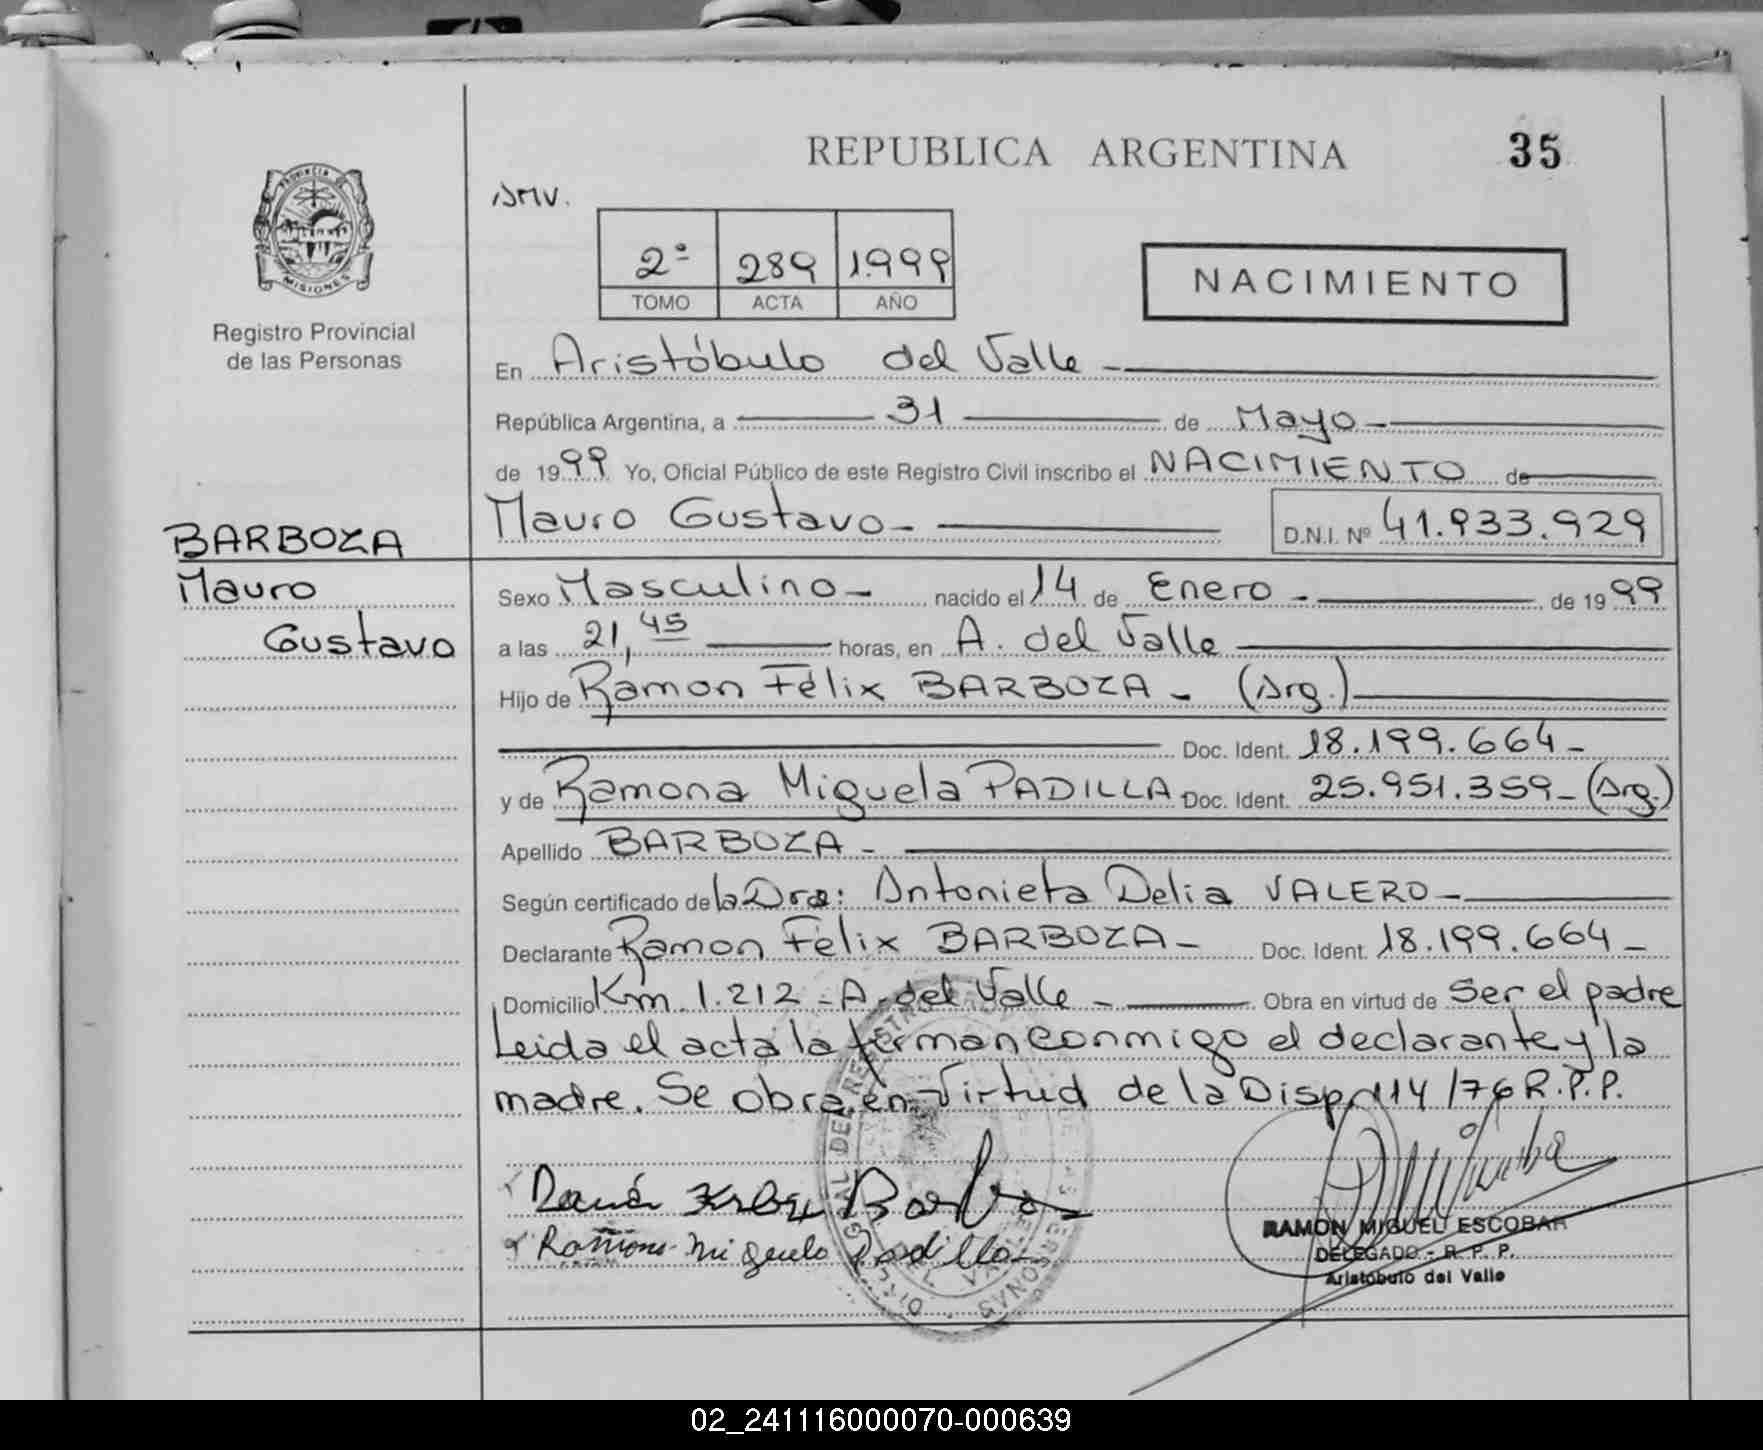 REPUBLICA ARGENTINA
35
PROVINCIA DE
MISIONES
Registro Provincial
de las Personas
2º 289 1.999
TOMO ACTA AÑO
NACIMIENTO
En Aristóbulo del Valle -
República Argentina, a 31 de Mayo -
de 1999 Yo, Oficial Público de este Registro Civil inscribo el NACIMIENTO de
Mauro Gustavo - D.N.I. Nº 41.933.929
BARBOZA
Mauro
Gustavo
Sexo Masculino - nacido el 14 de Enero - de 1999
a las 21,45 horas, en A. del Valle
Hijo de Ramon Félix BARBOZA - (Arg.)
Doc. Ident. 18.199.664 -
y de Ramona Miguela PADILLA Doc. Ident. 25.951.359 - (Arg.)
Apellido BARBOZA -
Según certificado de la Dra: Antonieta Delia VALERO -
Declarante Ramon Félix BARBOZA - Doc. Ident. 18.199.664 -
Domicilio Km 1.212 - A. del Valle - Obra en virtud de Ser el padre
Leida el acta la ferman conmigo el declarante y la
madre. Se obra en Virtud de la Disp. 114/76 R.P.P.
Ramona Miguela Padilla
RAMON MIGUEL ESCOBAR
DELEGADO - R. P. P.
Aristobulo del Valle
02_241116000070-000639